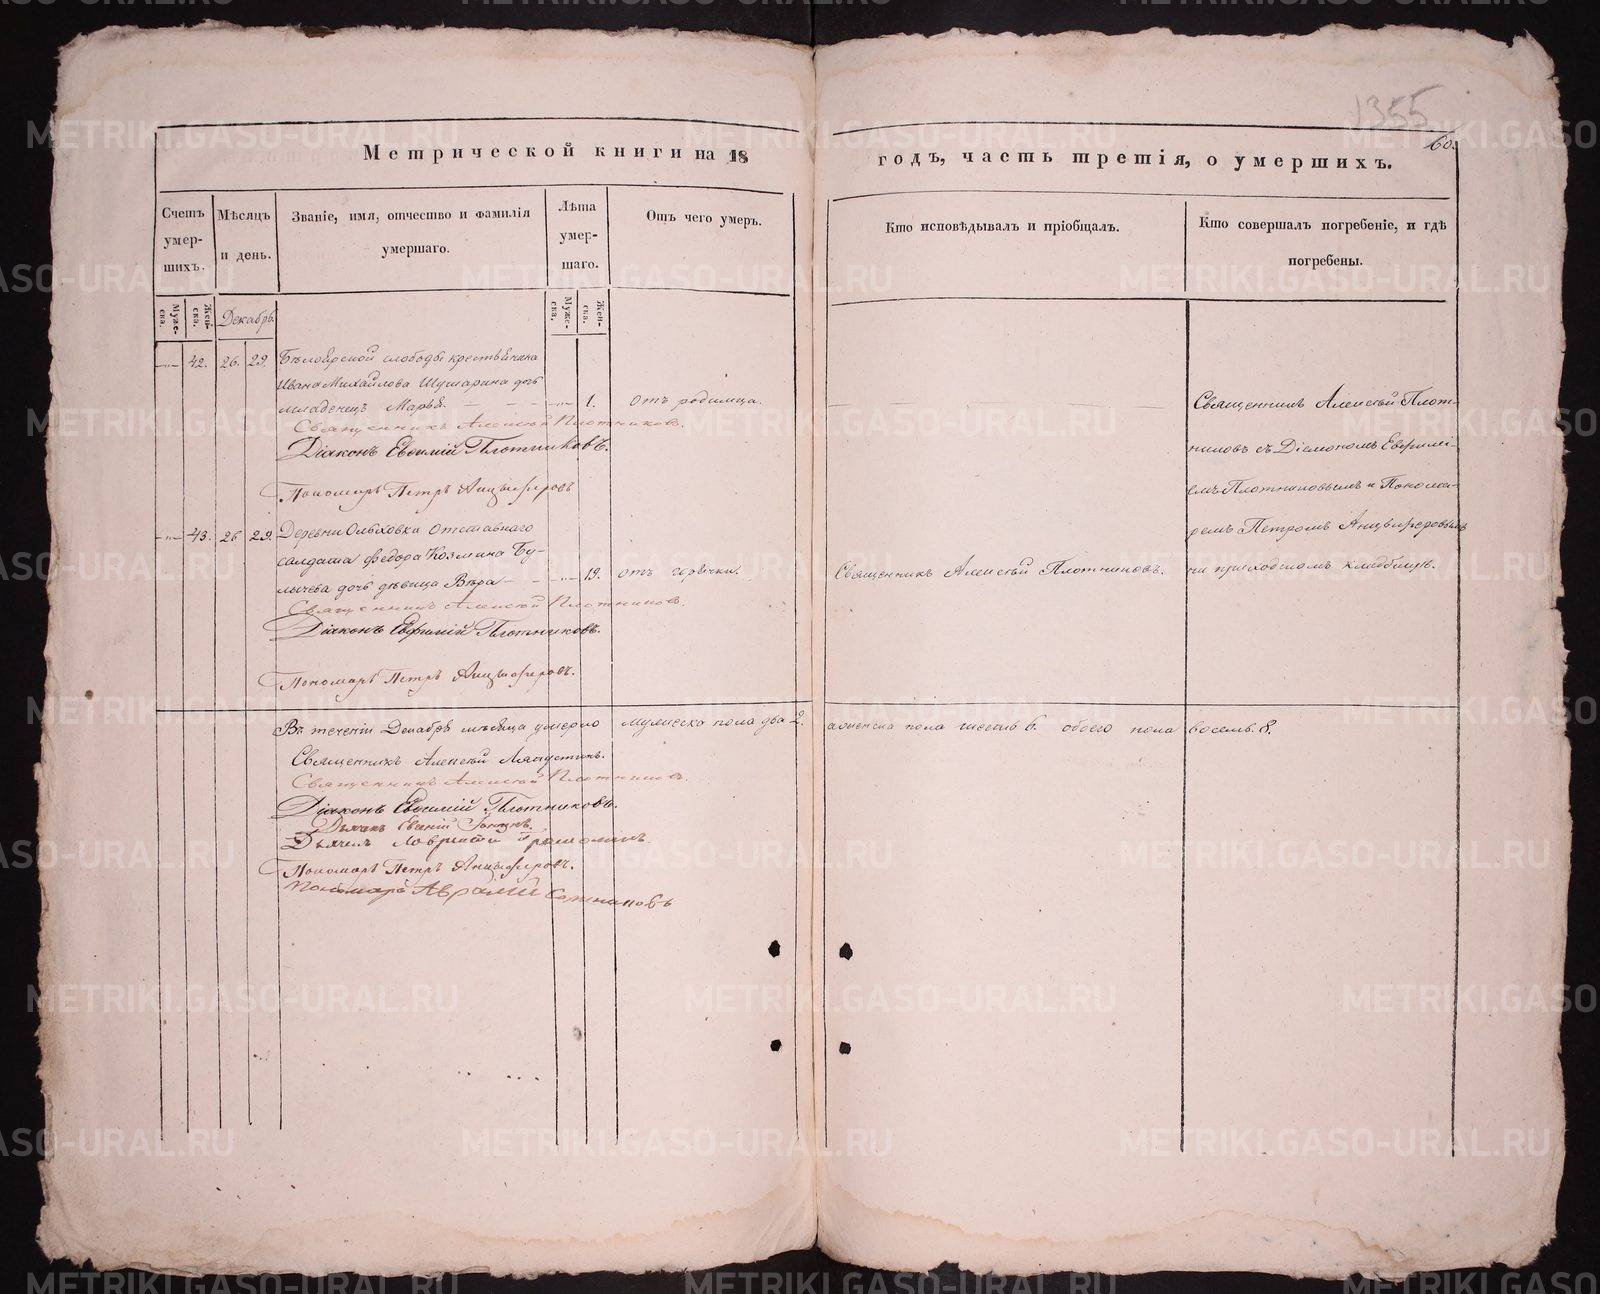 1355
60.
Метрической книги на 18 годъ, часть третія, о умершихъ.
Счетъ умер- шихъ.
Мѣсяцъ и день.
Званіе, имя, отчество и фамилія умершаго.
Лѣта умер- шаго.
Отъ чего умеръ.
Кто исповѣдывалъ и пріобщалъ.
Кто совершалъ погребеніе, и гдѣ погребены.
Муже- ска.
Жен- ска.
Декабрь.
Муже- ска.
Жен- ска.
42. 26. 29. Бѣлоярской слободы крестьянина
Ивана Михайлова Шушарина дочь
младенецъ Марья. 1. Отъ родимца.
Священникъ Алексѣй Плотниковъ.
Діаконъ Евѳимій Плотниковъ.
Пономарь Петръ Анцыферовъ
Священникъ Алексѣй Плот-
никовъ съ Діакономъ Евфимі-
емъ Плотниковымъ и Понома-
ремъ Петромъ Анцыферовымъ
на приходскомъ кладбищѣ.
43. 26 29. Деревни Ольховки отставнаго
солдата Федора Козмина Бу-
лычева дочь дѣвица Вѣра 19. отъ горячки. Священникъ Алексѣй Плотниковъ.
Священникъ Алексѣй Плотниковъ.
Діаконъ Евфимій Плотниковъ.
Пономарь Петръ Анцыферовъ.
Въ теченіи Декабря мѣсяца умерло мужеска пола два 2. женска пола шесть 6. обоего пола восемь. 8.
Священникъ Алексѣй
Священникъ Алексѣй Плотниковъ.
Діаконъ Евѳимій Плотниковъ.
Дьячекъ
Дьячекъ
Пономарь Петръ Анцыферовъ.
Пономарь Аврамій
METRIKI.GASO-URAL.RU